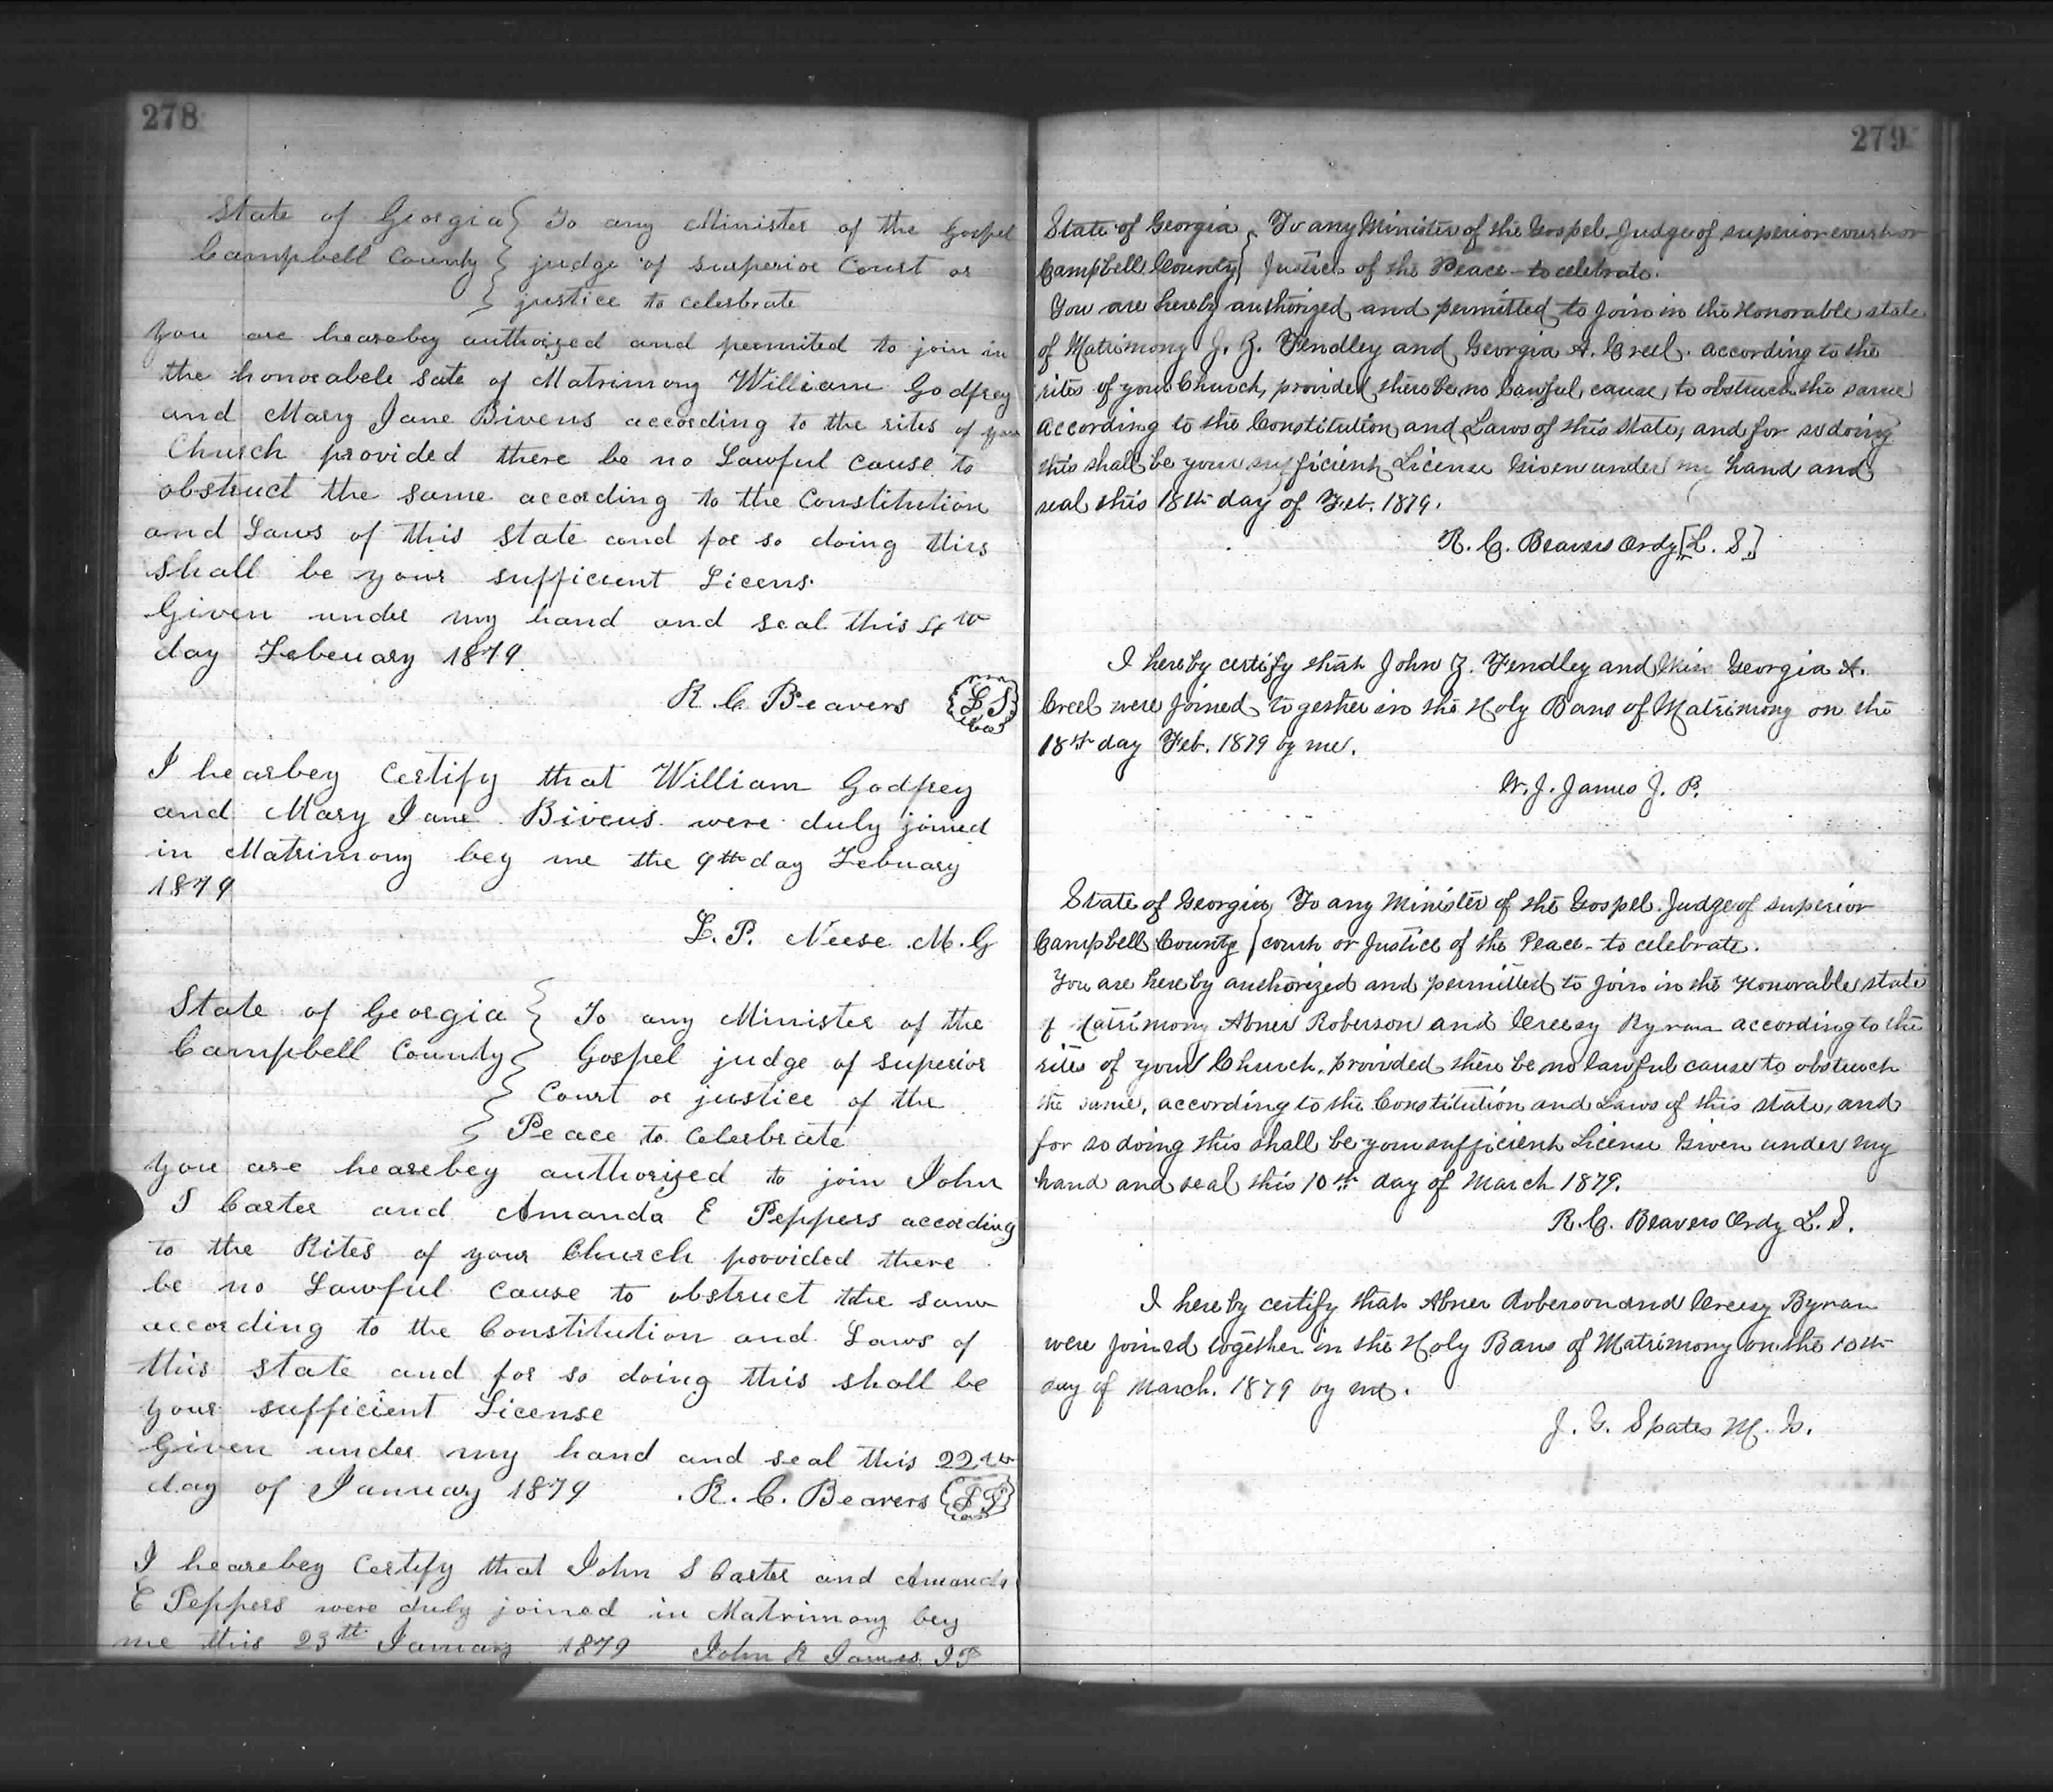 278
State of Georgia } To any Minister of the Gospel
Campbell County } judge of superior Court or
} justice to celesbrate
you are hearebey authorized and permited to join in
the honorabele sate of Matrimony William Godfrey
and Mary Jane Bivens according to the rites of your
Church provided there be no Lawful cause to
obstruct the same according to the Constitution
and Laws of this state and for so doing this
shall be your sufficient Licens
Given under my hand and seal this 4th
day Febeuary 1879
R. C. Beavers LS
I hearbey Certify that William Godfrey
and Mary Jane Bivens were duly joined
in Matrimony bey me the 9th day Febuary
1879
L. P. Neese M. G
State of Georgia } To any Minister of the
Campbell County } Gospel judge of superior
} Court or justice of the
} Peace to Celesbrate
you are hearebey authorized to join John
S Carter and Amanda E Peppers according
to the Rites of your Church poovided there
be no Lawful cause to obstruct the same
according to the Constitution and Laws of
this state and for so doing this shall be
your sufficient License
Given under my hand and seal this 22
day of January 1879 R. C. Beavers LS
I hearebey Certify that John S Carter and Amanda
E Peppers were duly joined in Matrimony bey
me this 23th January 1879 John R James JP
279
State of Georgia } To any Minister of the Gospel Judge of superior court or
Campbell County } Justice of the Peace - to celebrate.
You are hereby authorized and permitted to join in the Honorable state
of Matrimony J. Z. Fendley and Georgia A. Creel. according to the
rites of your Church, provided there be no lawful cause to obstruct the same
according to the Constitution and Laws of this State, and for so doing
this shall be your sufficient License Given under my hand and
seal this 18th day of Feb. 1879.
R. C. Beavers Ordy [L. S.]
I hereby certify that John Z. Fendley and Miss Georgia A.
Creel were joined together in the Holy Bans of Matrimony on the
18th day Feb. 1879 by me.
W. J. James J. P.
State of Georgia, To any Minister of the Gospel. Judge of superior
Campbell County } court or Justice of the Peace - to celebrate.
You are hereby authorized and permitted to join in the Honorable state
of Matrimony Abner Roberson and Creesy Bynan according to the
rites of your Church, provided there be no lawful cause to obstruct
the same, according to the Constitution and Laws of this state, and
for so doing this shall be your sufficient License Given under my
hand and seal this 10th day of March 1879.
R. C. Beavers Ordy L. S.
I hereby certify that Abner Roberson and Creesy Bynan
were joined together in the Holy Bans of Matrimony on the 10th
day of March. 1879 by me.
J. G. Spates M. G.